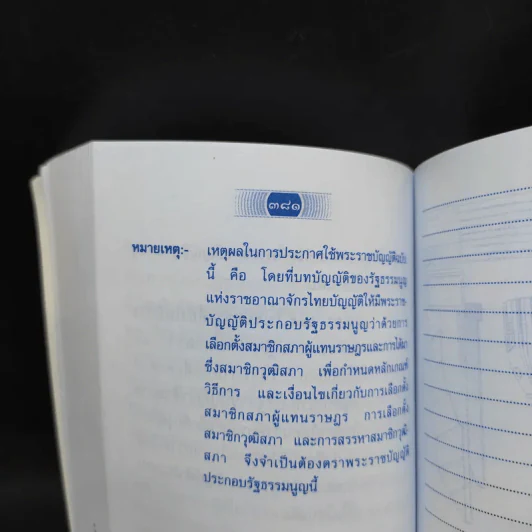 ๓๘๑
หมายเหตุ:- เหตุผลในการประกาศใช้พระราชบัญญัติฉบับ
นี้ คือ โดยที่บทบัญญัติของรัฐธรรมนูญ
แห่งราชอาณาจักรไทยบัญญัติให้มีพระราช-
บัญญัติประกอบรัฐธรรมนูญว่าด้วยการ
เลือกตั้งสมาชิกสภาผู้แทนราษฎรและการได้มา
ซึ่งสมาชิกวุฒิสภา เพื่อกำหนดหลักเกณฑ์
วิธีการ และเงื่อนไขเกี่ยวกับการเลือกตั้ง
สมาชิกสภาผู้แทนราษฎร การเลือกตั้ง
สมาชิกวุฒิสภา และการสรรหาสมาชิกวุฒิ-
สภา จึงจำเป็นต้องตราพระราชบัญญัติ
ประกอบรัฐธรรมนูญนี้